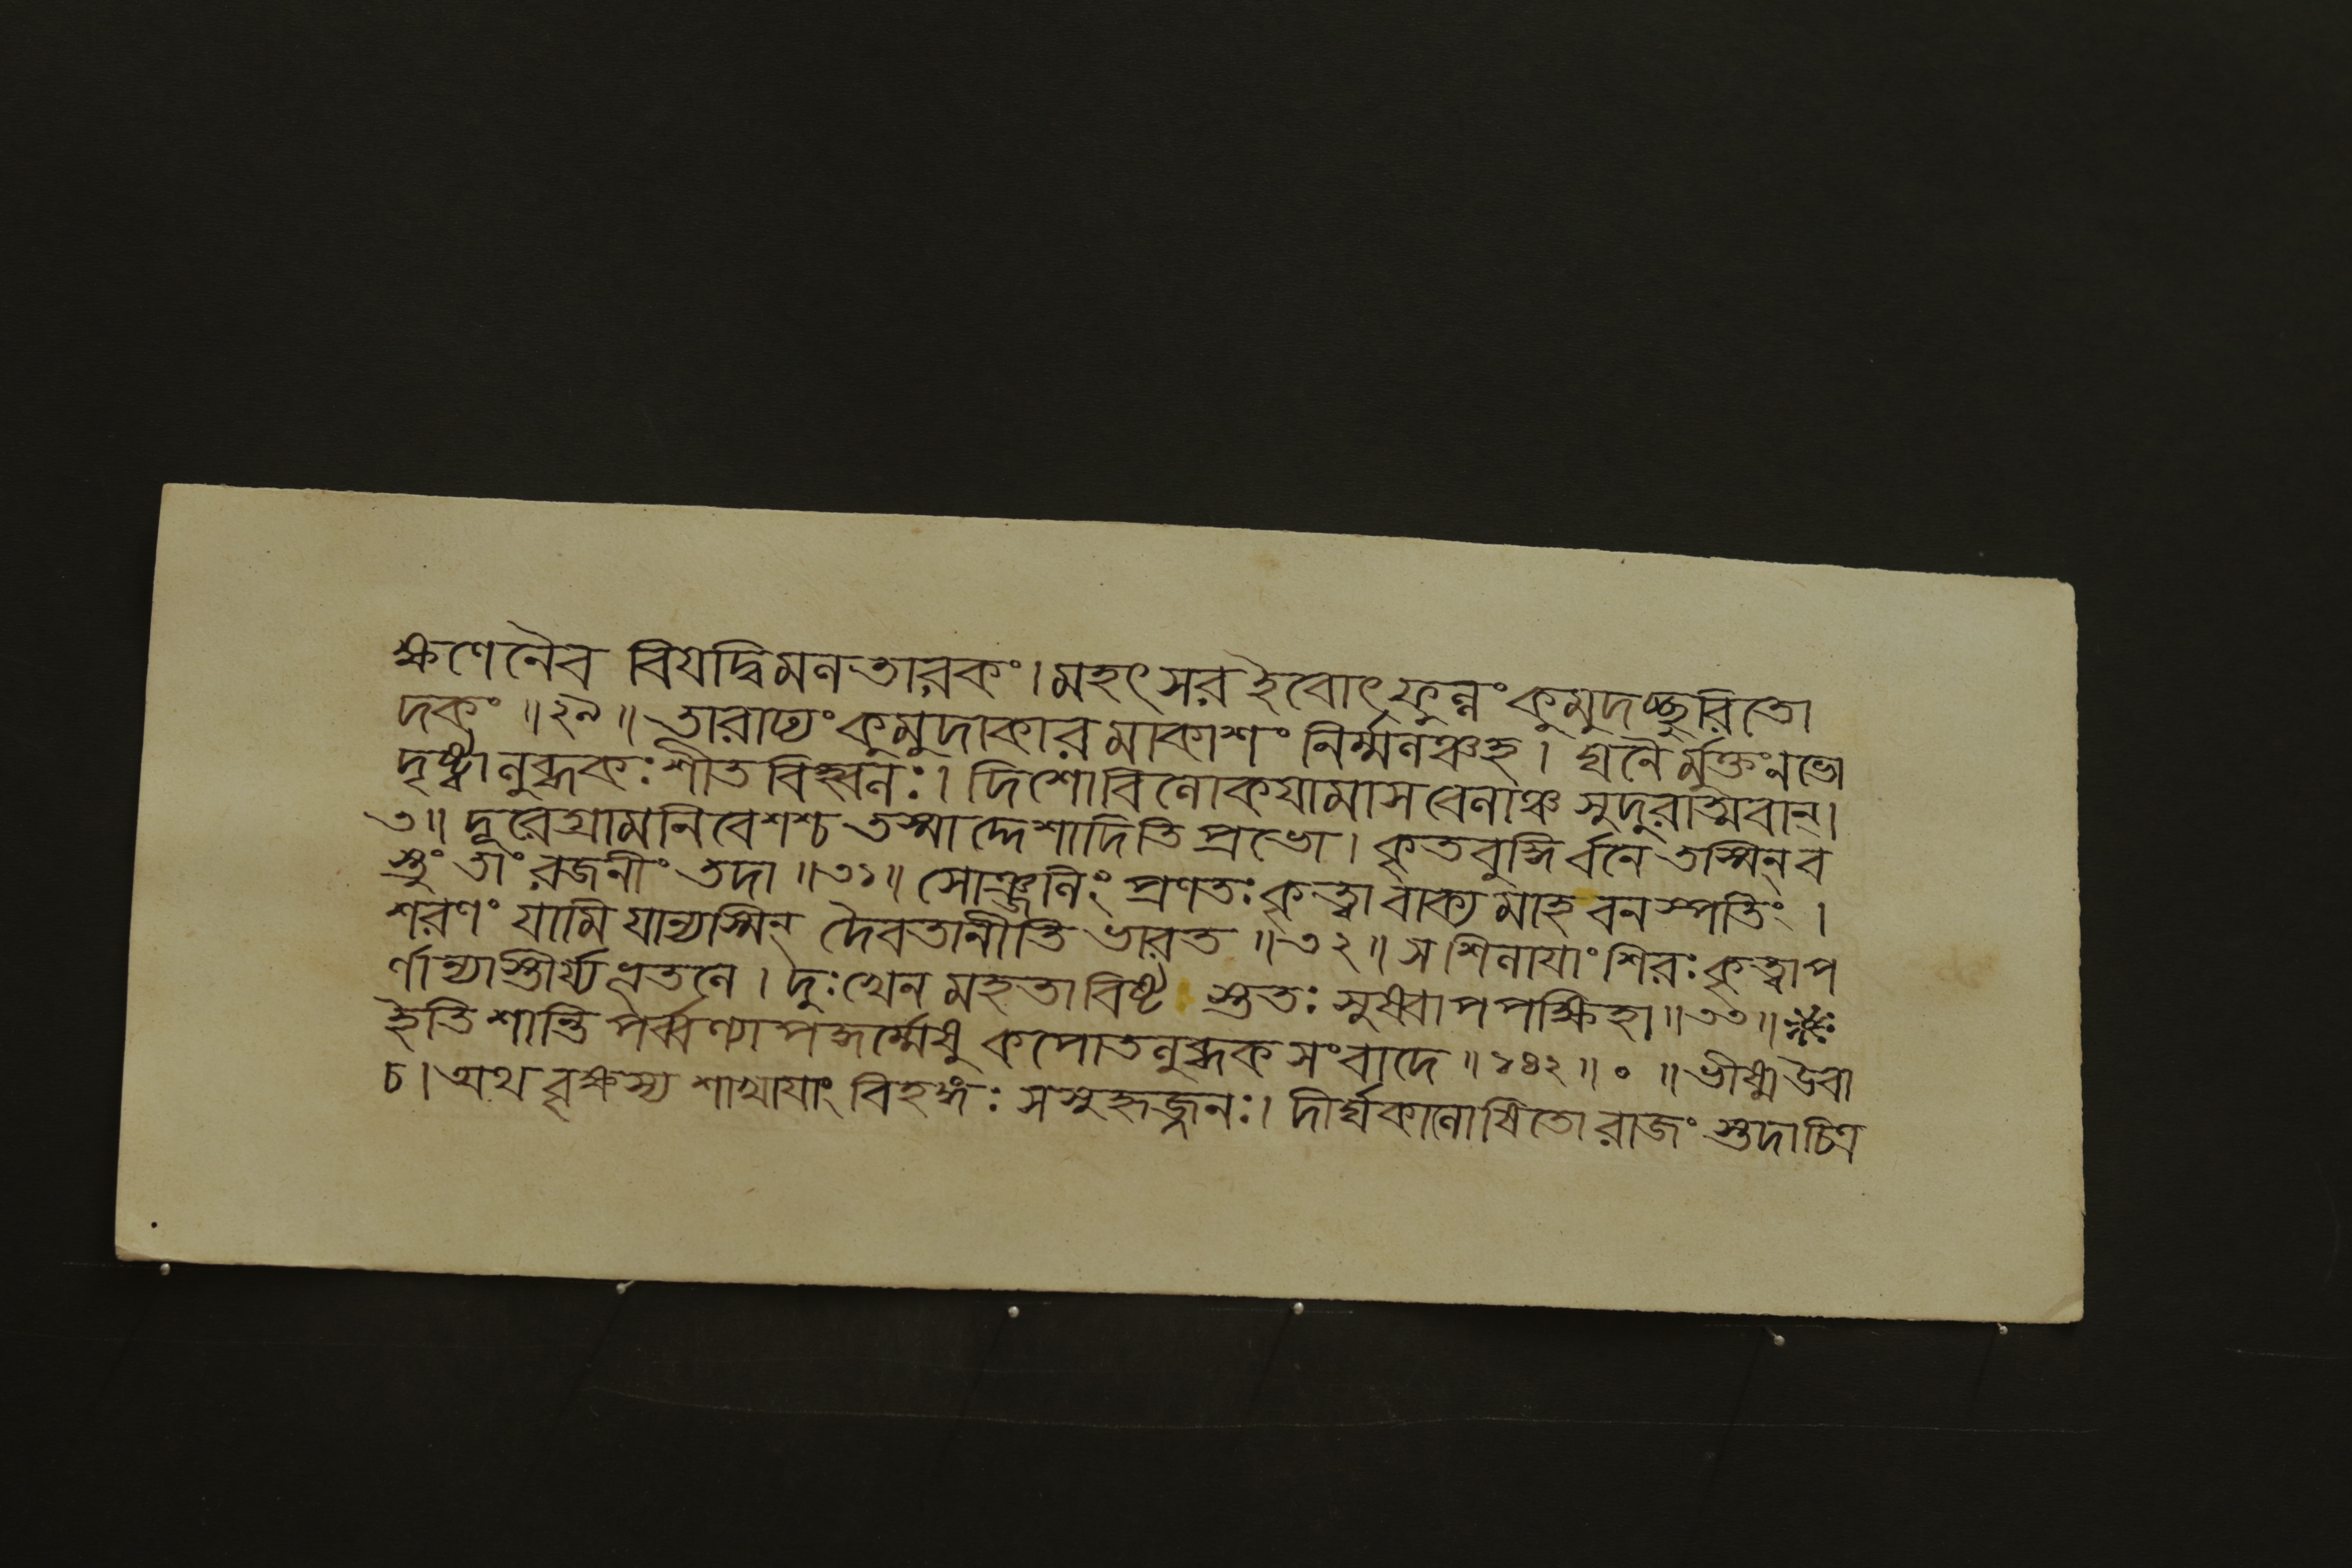 ক্ষণেনৈব বিযদ্বিমলতারকং। মহৎসর ইবোৎফুল্লং কুমুদচ্ছুরিতো
দকং॥২৯॥ তারাঢ্যং কুমুদাকারমাকাশং নির্ম্মলঞ্চহ। ঘনৈর্মুক্তংনভো
দৃষ্ট্বালুব্ধকঃশীতবিহ্বলঃ। দিশোবিলোকযামাসবেলাঞ্চ সুদুরাত্মবান্।
৩॥ দূরেগ্রামনিবেশশ্চ তস্মাদ্দেশাদিতি প্রভো। কৃতবুদ্ধির্বনে তস্মিন্ব
স্তুং তাং রজনীং তদা॥৩১॥ সোঞ্জলিং প্রণতঃ কৃত্বা বাক্যমাহ বনস্পতিং।
শরণং যামি যান্যস্মিন্ দৈবতানীতি ভারত॥৩২॥ স শিলাযাং শিরঃ কৃত্বাপ
র্ণান্যাস্তীর্য্যভূতলে। দুঃখেন মহতাবিষ্ট স্ততঃ সুষ্বাপপক্ষিহা॥৩৩॥
ইতি শান্তিপর্ব্বণ্যাপদ্ধর্ম্মেষু কপোতলুব্ধকসংবাদে॥১৪২॥০॥ভীষ্মউবা
চ। অথ বৃক্ষস্য শাখাযাং বিহঙ্গঃ সসুহৃজ্জনঃ। দীর্ঘকালোষিতো রাজং স্তদাচিত্র